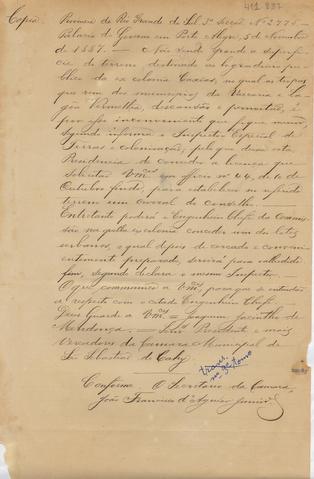 Copia Provincia do Rio Grande do Sul 3ª Secção Nº 2776 -
Palacio do Governo em Porto Alegre, 5 de Novembro
de 1887. - Não sendo grande a superfi-
cie do terreno destinado ao logradouro pu-
blico da ex colonia Caxias, no qual as tropas
que vem dos municipios da Vaccaria e La-
gôa Vermelha, descansão e pernoitão, é
por isso inconveniente que fique menor,
segundo informa o Inspector Especial de
Terras e colonisação; pelo que deixa esta
Presidencia de conceder a licença que
solicitou Vmces em officio nº 44, de
Outubro findo, para estabelecer no referido
terreno um curral do conselho.
Entretanto poderá o Engenheiro Chefe da commis-
são na quella ex colonia conceder um dos lotes
urbanos, o qual depois de cercado e conveni-
entemente preparado, servirá para
fim, segundo declara o mesmo Inspector.
O que communico a Vmces para que se entendão
a respeito com o citado Engenheiro Chefe.
Deus Guarde a Vmces = Joaquim Jacintho de
Mendonça. = Snres Presidente e mais
Vereadores da Camara Municipal de
São Sebastião do Cahy
Conforme O Secretario da Camara,
João Francisco d'Aguiar Junior